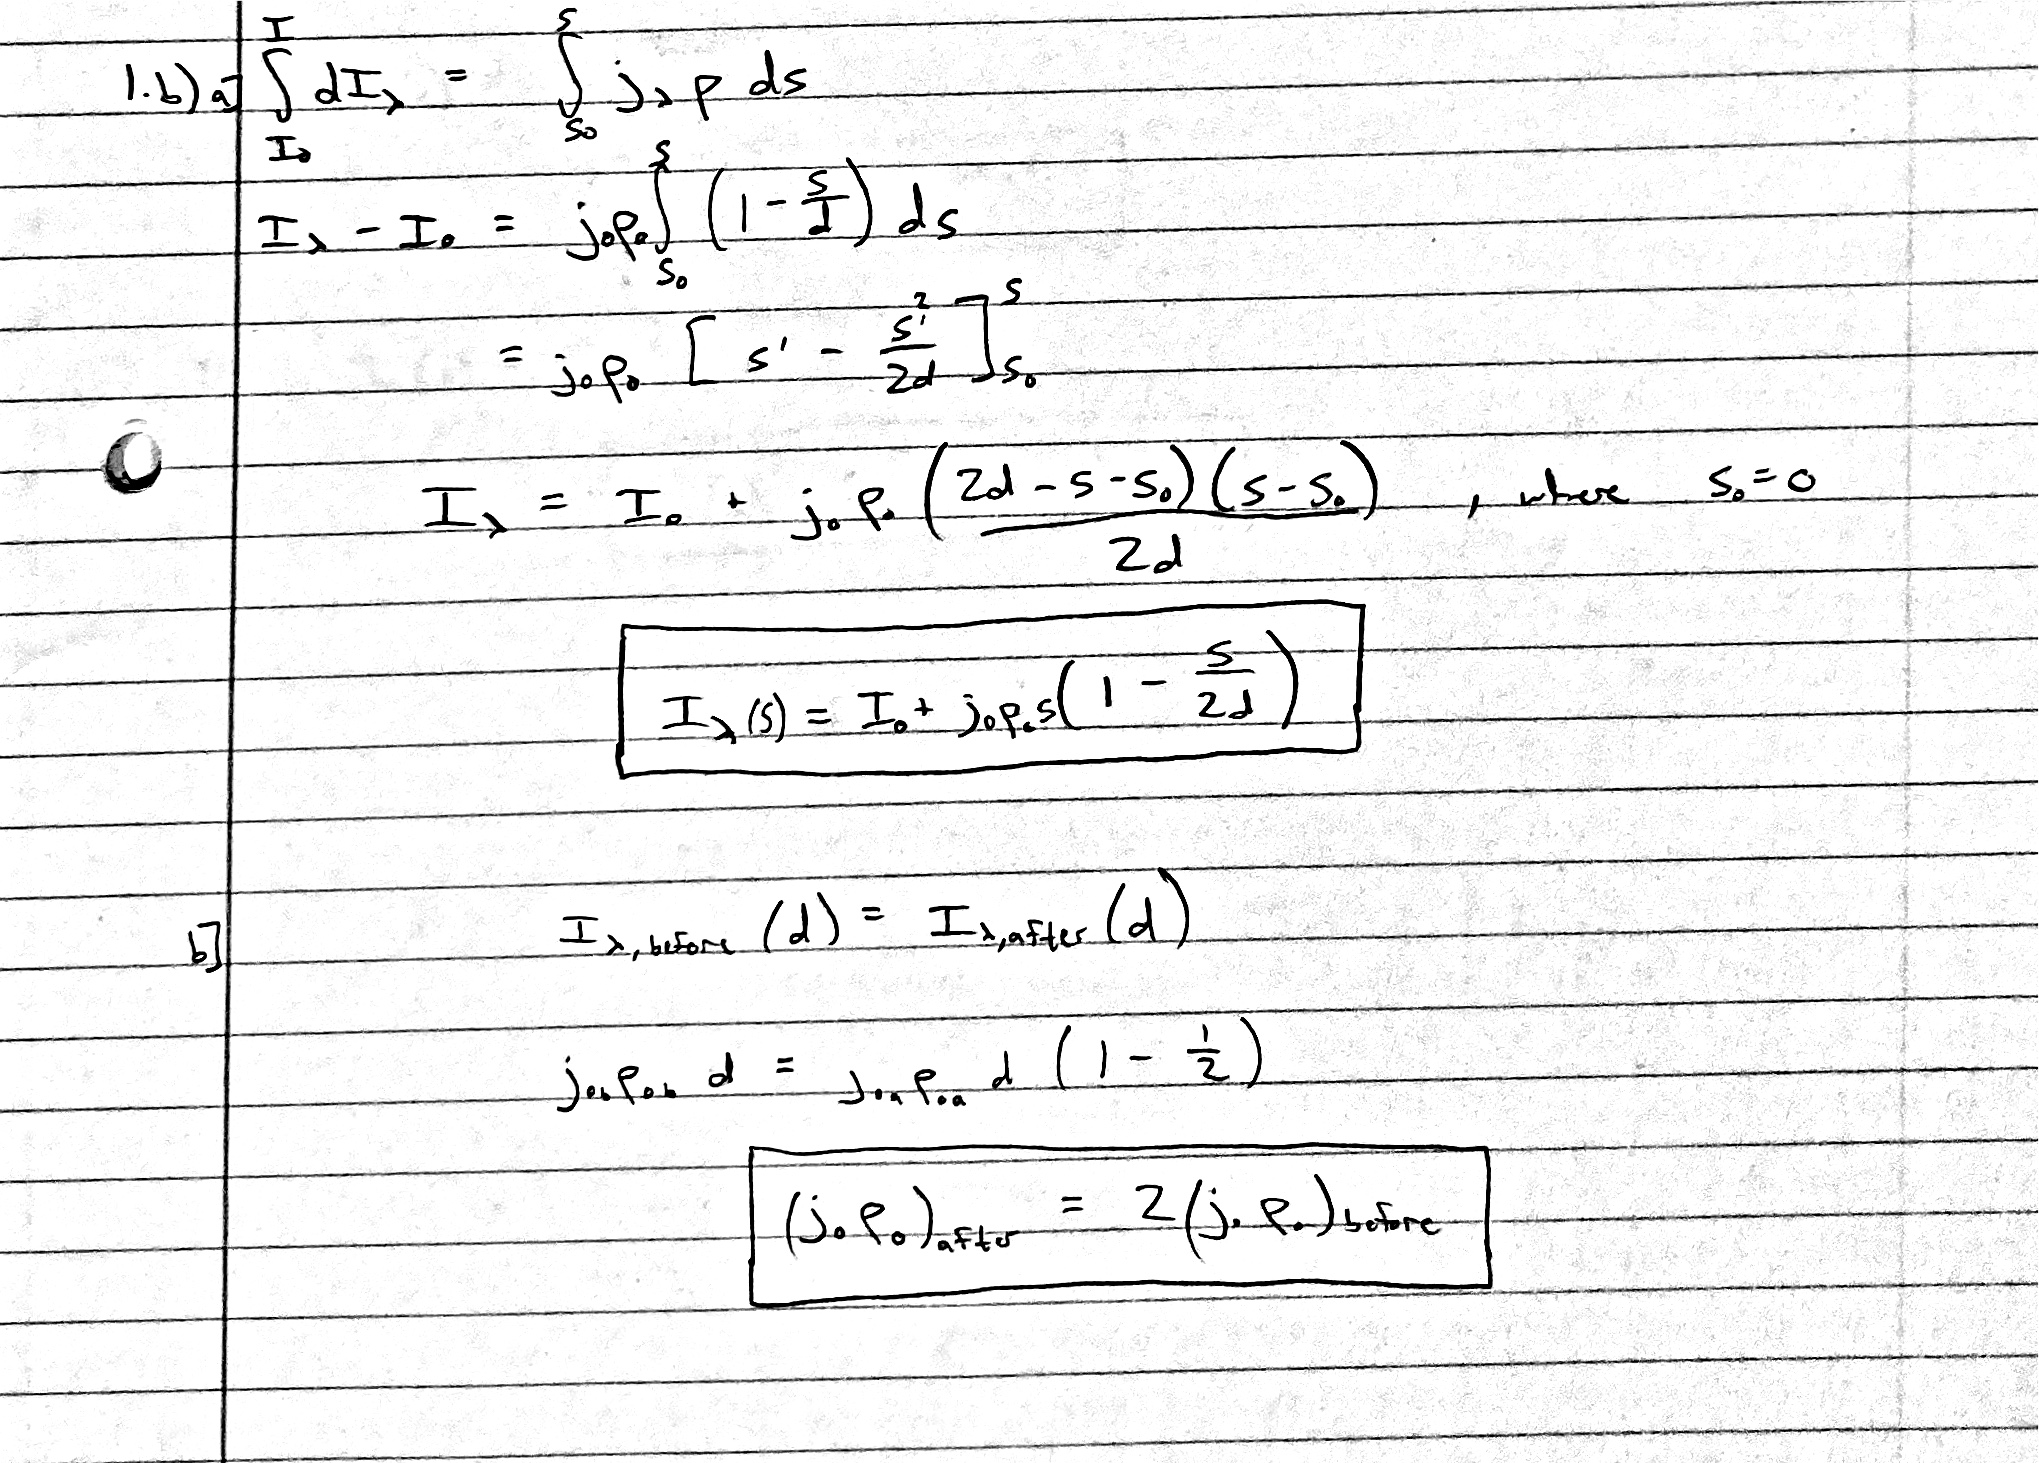 1.b) a] ∫_{I₀}^{I} dI_λ = ∫_{s₀}^{s} j_λ ρ ds
I_λ - I₀ = j₀ρ₀ ∫_{s₀}^{s} (1 - s/d) ds
= j₀ρ₀ [ s' - s'²/2d ]_{s₀}^{s}
I_λ = I₀ + j₀ρ₀ ((2d - s - s₀)(s - s₀)/2d) , where s₀ = 0
I_λ(s) = I₀ + j₀ρ₀s(1 - s/2d)
b] I_{λ,before}(d) = I_{λ,after}(d)
j_{0b}ρ_{0b} d = j_{0a}ρ_{0a} d (1 - 1/2)
(j₀ρ₀)_{after} = 2(j₀ρ₀)_{before}